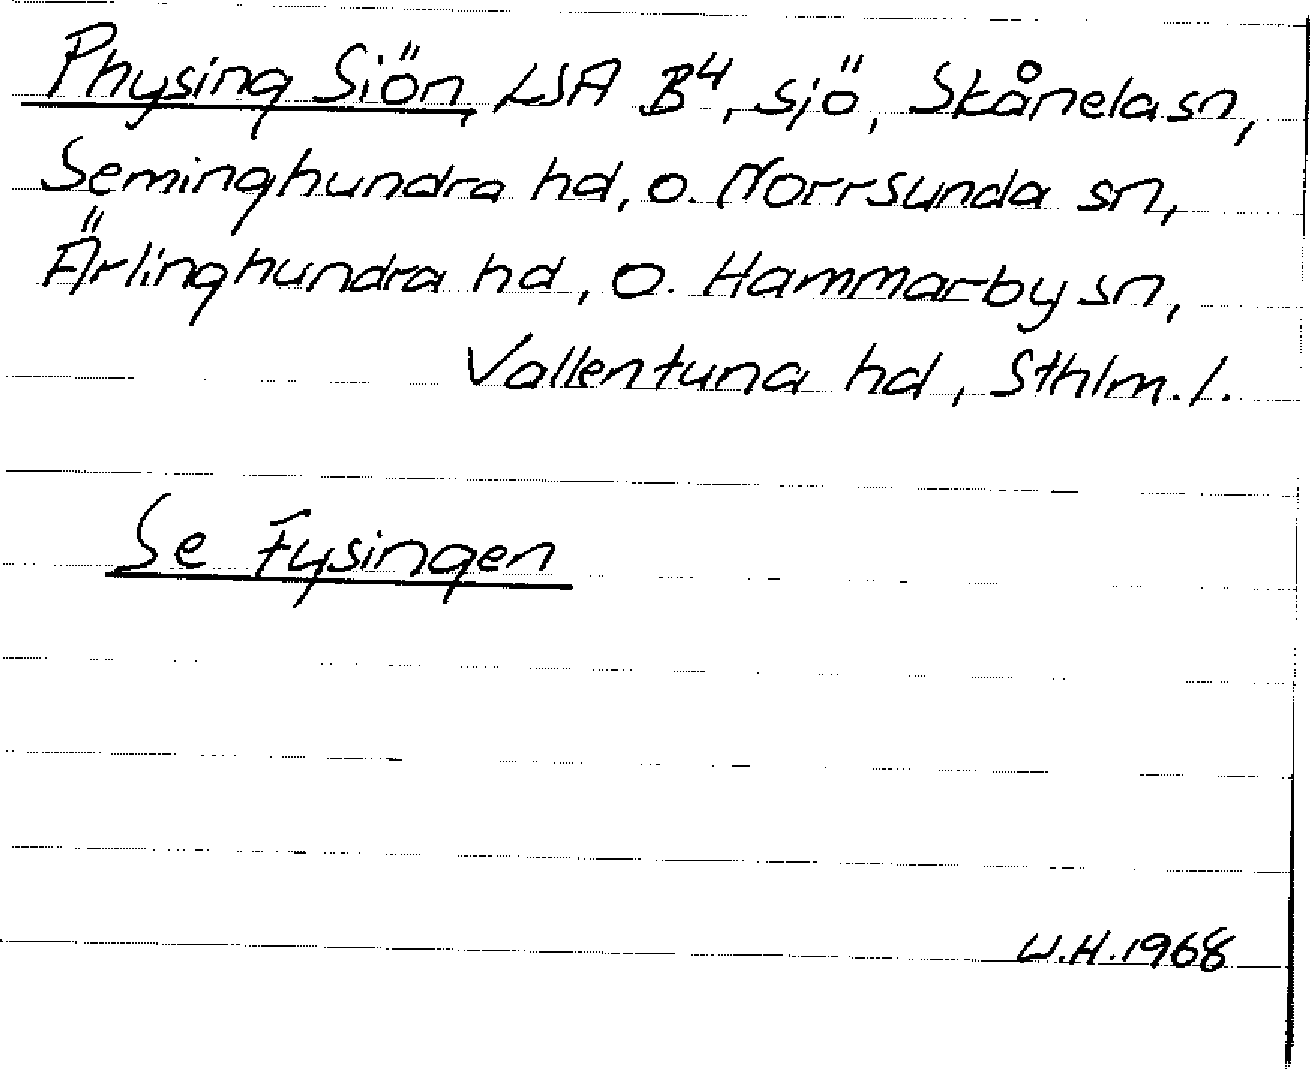 Physing Siön, LSA B⁴, sjö, Skånela sn,
Seminghundra hd, o. Norrsunda sn,
Ärlinghundra hd, o. Hammarby sn,
Vallentuna hd, Sthlm. l.
Se Fysingen
W.H. 1968